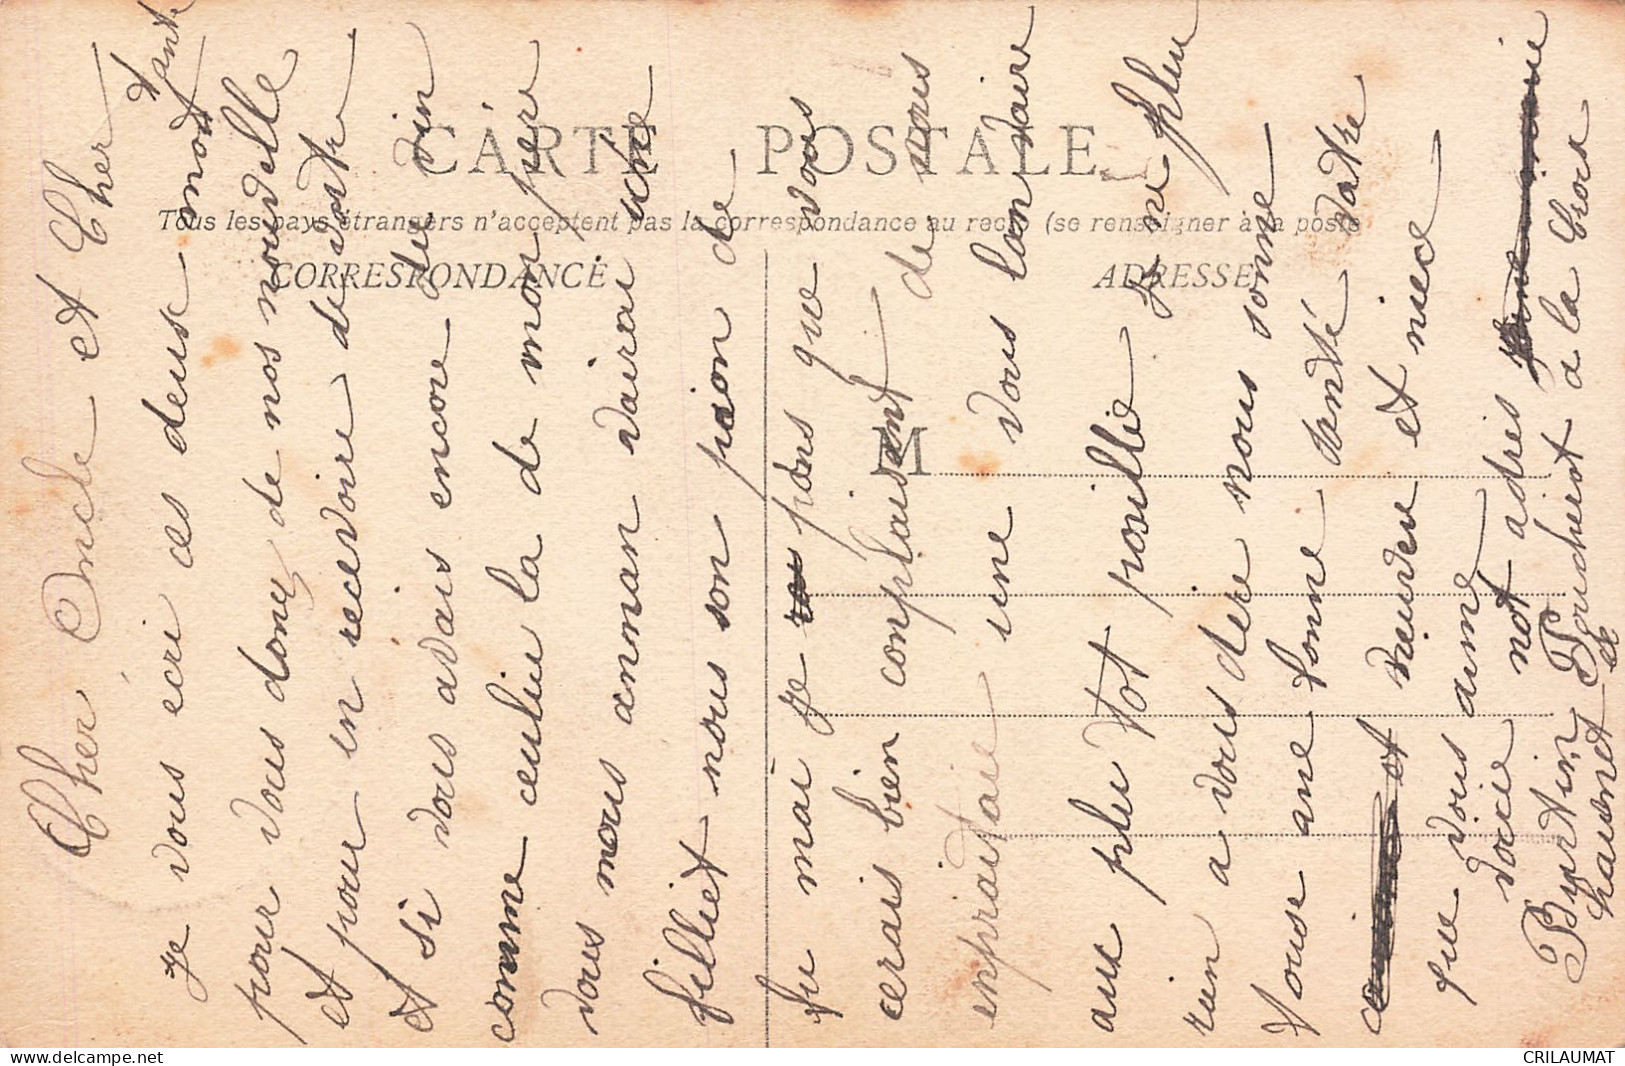 CARTE POSTALE
Tous les pays étrangers n'acceptent pas la correspondance au recto (se renseigner à la poste
CORRESPONDANCE
ADRESSE
M
Cher Oncle et Cher Tante
je vous écri ces deux mot
pour vous doney de nos nouvelle
et pour en recevoire de votre
et si vous avais encore du vin
comme ceului la de mon père
vous nous anman vairai une
filliet nous son pion de
fu mai je pans que vous
cerais bien conplaisent de nous
enpraitaie une vous lanvaire
aux plu tot posillie je ne plu
rien a vous dire nous sonne
touse ane bonne santé votre
neuveu et niece
que vous aime
voicie not adres
Burtin Poucheriot a la Grove
et